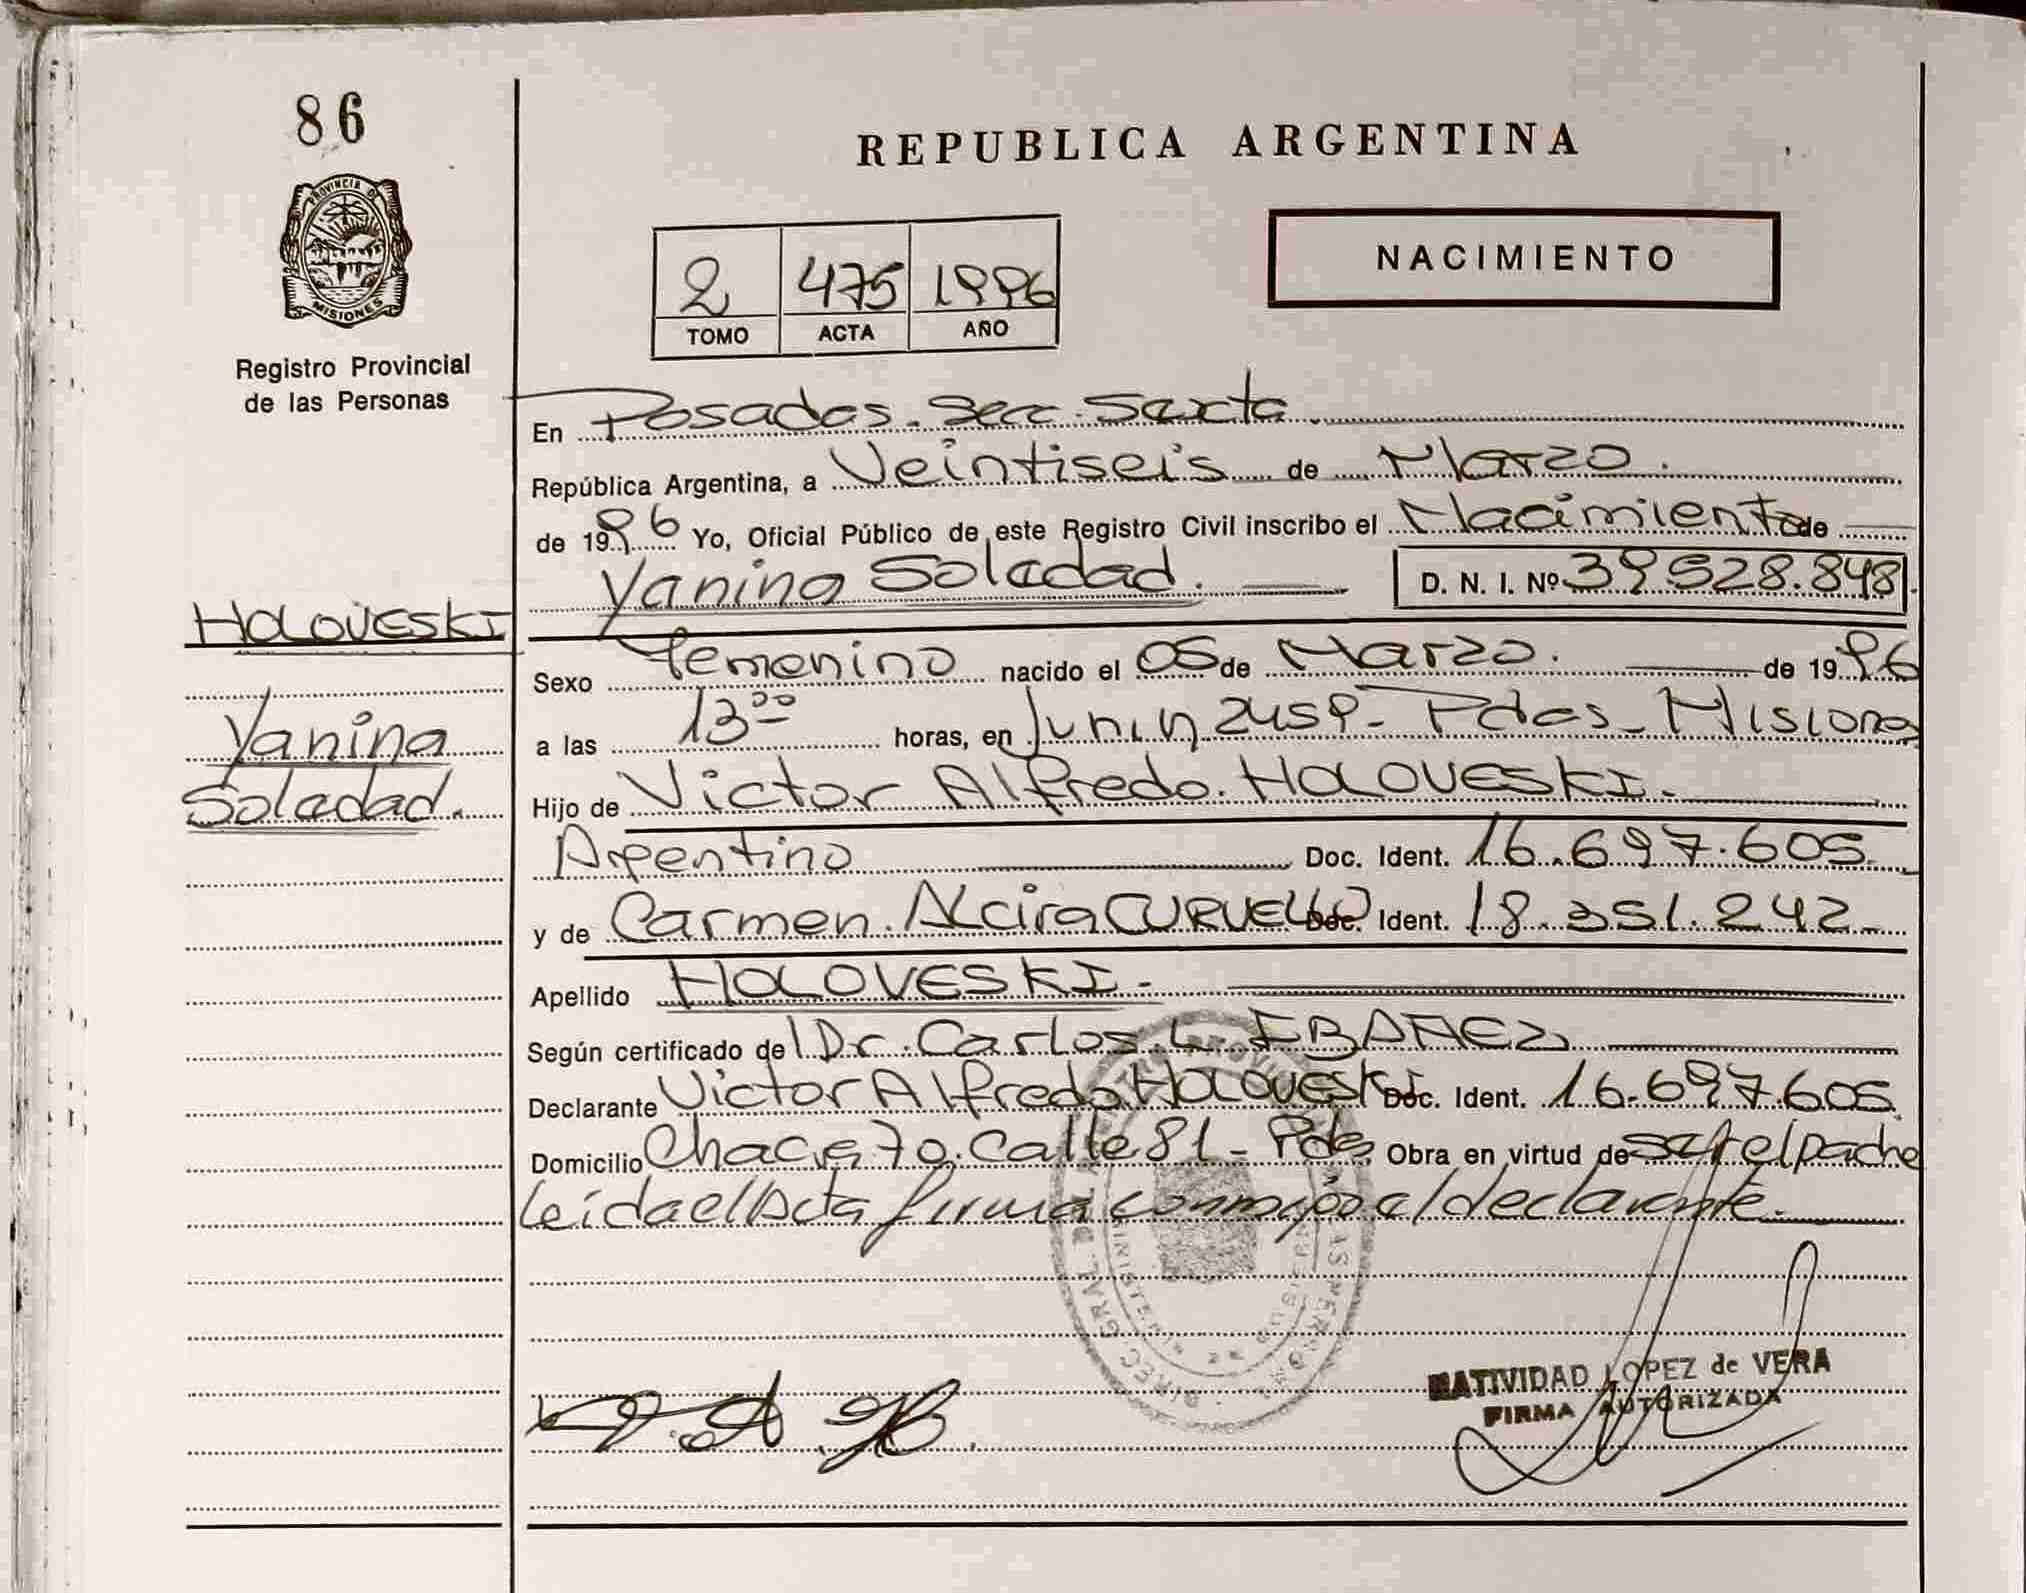 86
REPUBLICA ARGENTINA
PROVINCIA DE
MISIONES
Registro Provincial
de las Personas
2 475 1996
TOMO ACTA AÑO
NACIMIENTO
En Posadas. Secc. Sexta
República Argentina, a Veintiseis de Marzo.
de 1996 Yo, Oficial Público de este Registro Civil inscribo el Nacimiento de
Yanina Soledad. D. N. I. Nº 39.528.848
HOLOVESKI
Yanina
Soledad.
Sexo Femenino nacido el 05 de Marzo. de 1996
a las 13 00 horas, en Junin 2459- Pdas- Misiones
Hijo de Victor Alfredo. HOLOVESKI.
Argentino Doc. Ident. 16.697.605.
y de Carmen. Alcira CURVELLO Doc. Ident. 18.351.242
Apellido HOLOVESKI.
Según certificado de Dr. Carlos. L. IBAÑEZ
Declarante Victor Alfredo HOLOVESKI Doc. Ident. 16.697.605.
Domicilio Chacra 70. Calle 81- Pdas Obra en virtud de ser el padre
Leída el Acta firma conmigo el declarante.
DIREC. GRAL. DE
V. A. H.
NATIVIDAD LOPEZ de VERA
FIRMA AUTORIZADA